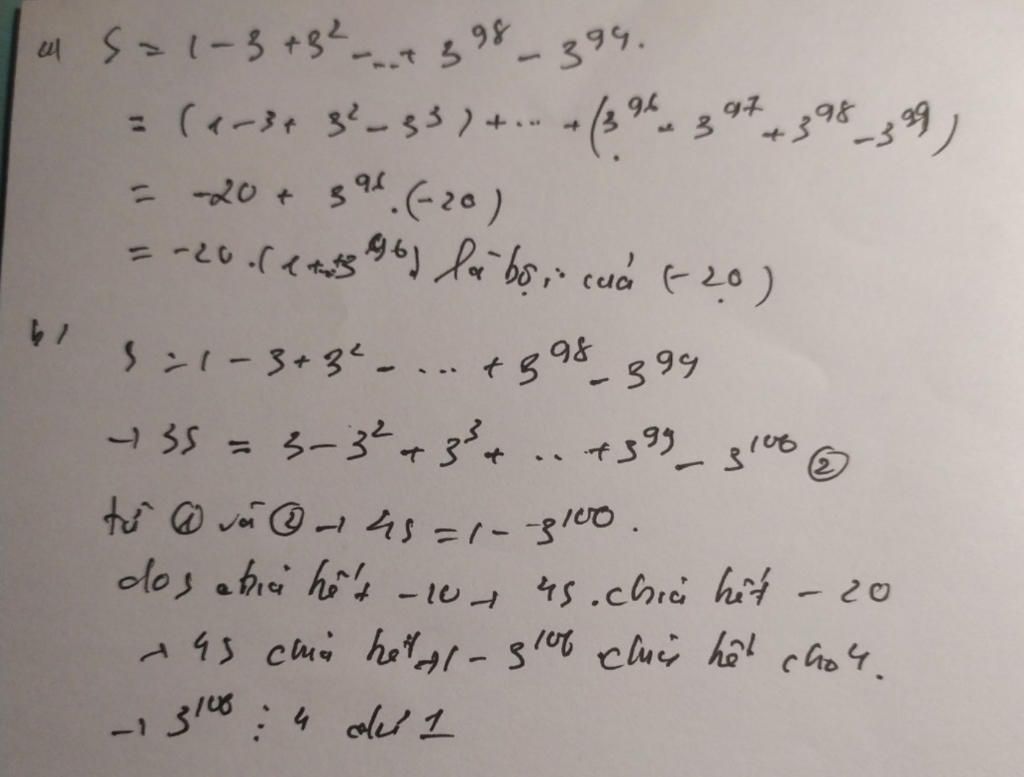 a) S = 1 - 3 + 3² - ... + 3⁹⁸ - 3⁹⁹.
= (1 - 3 + 3² - 3³) + ... + (3⁹⁶ - 3⁹⁷ + 3⁹⁸ - 3⁹⁹)
= -20 + 3⁹⁶.(-20)
= -20.(1+...+3⁹⁶) là bội của (-20)
b)
S = 1 - 3 + 3² - ... + 3⁹⁸ - 3⁹⁹
→ 3S = 3 - 3² + 3³ + .. + 3⁹⁹ - 3¹⁰⁰ ②
từ ① và ② → 4S = 1 - 3¹⁰⁰.
do S chia hết -20 → 4S chia hết - 20
→ 4S chia hết → 1 - 3¹⁰⁰ chia hết cho 4.
→ 3¹⁰⁰ : 4 dư 1